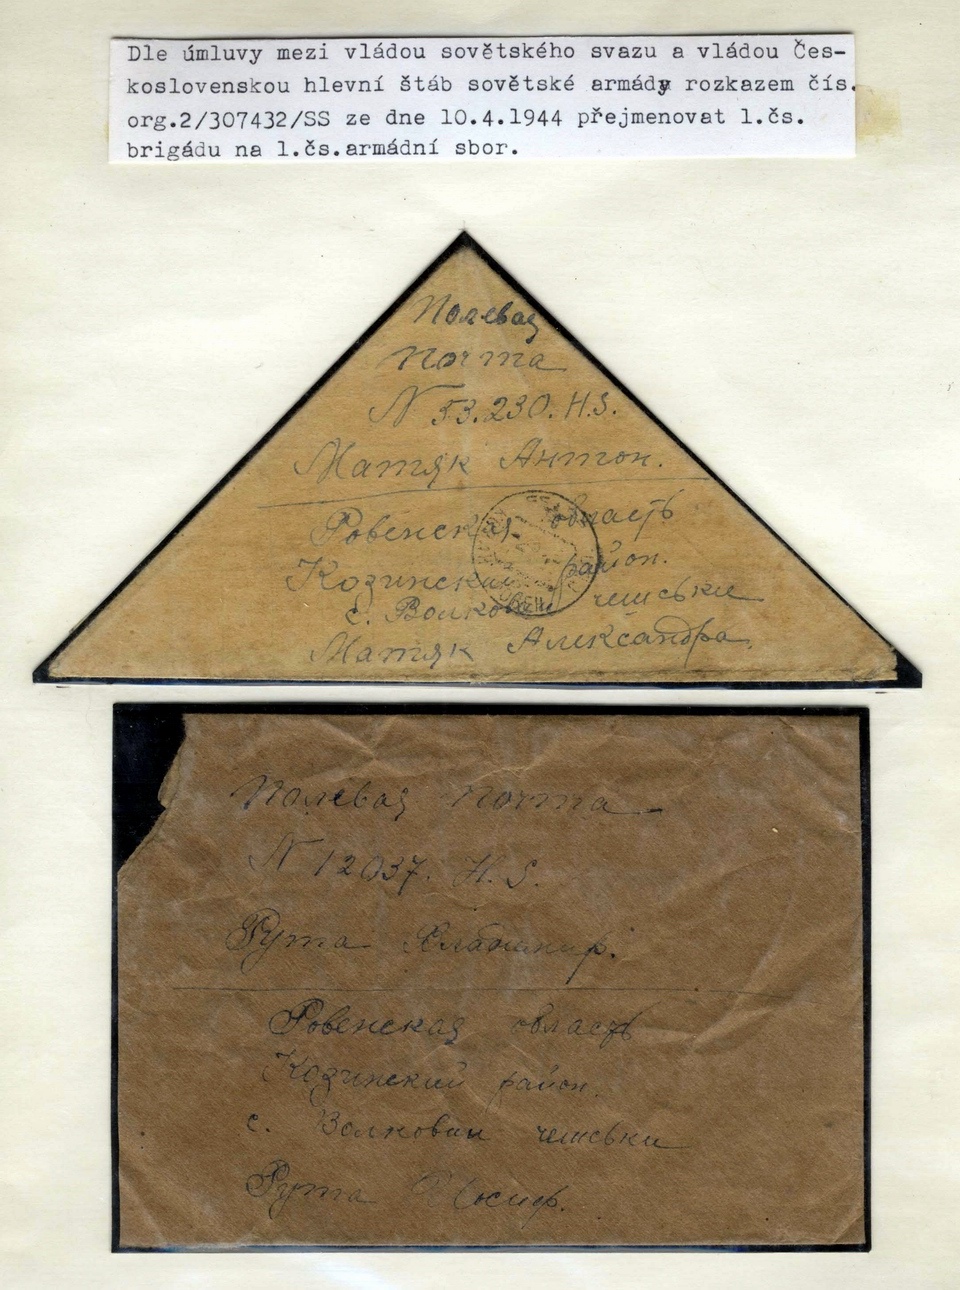 Dle úmluvy mezi vládou sovětského svazu a vládou Čes-
koslovenskou hlevní štáb sovětské armády rozkazem čís.
org.2/307432/SS ze dne 10.4.1944 přejmenovat 1.čs.
brigádu na 1.čs.armádní sbor.
Полевая
почта
N 53.230. H.S.
Матяк Антон.
Ровенская область
Козинский район.
с. Волковыи чешськие
Матяк Александра.
Полевая почта
N 12037. H.S.
Рута
Ровенская область
Козинский район.
с. Волковыи чешськи
Рута Иосиф.